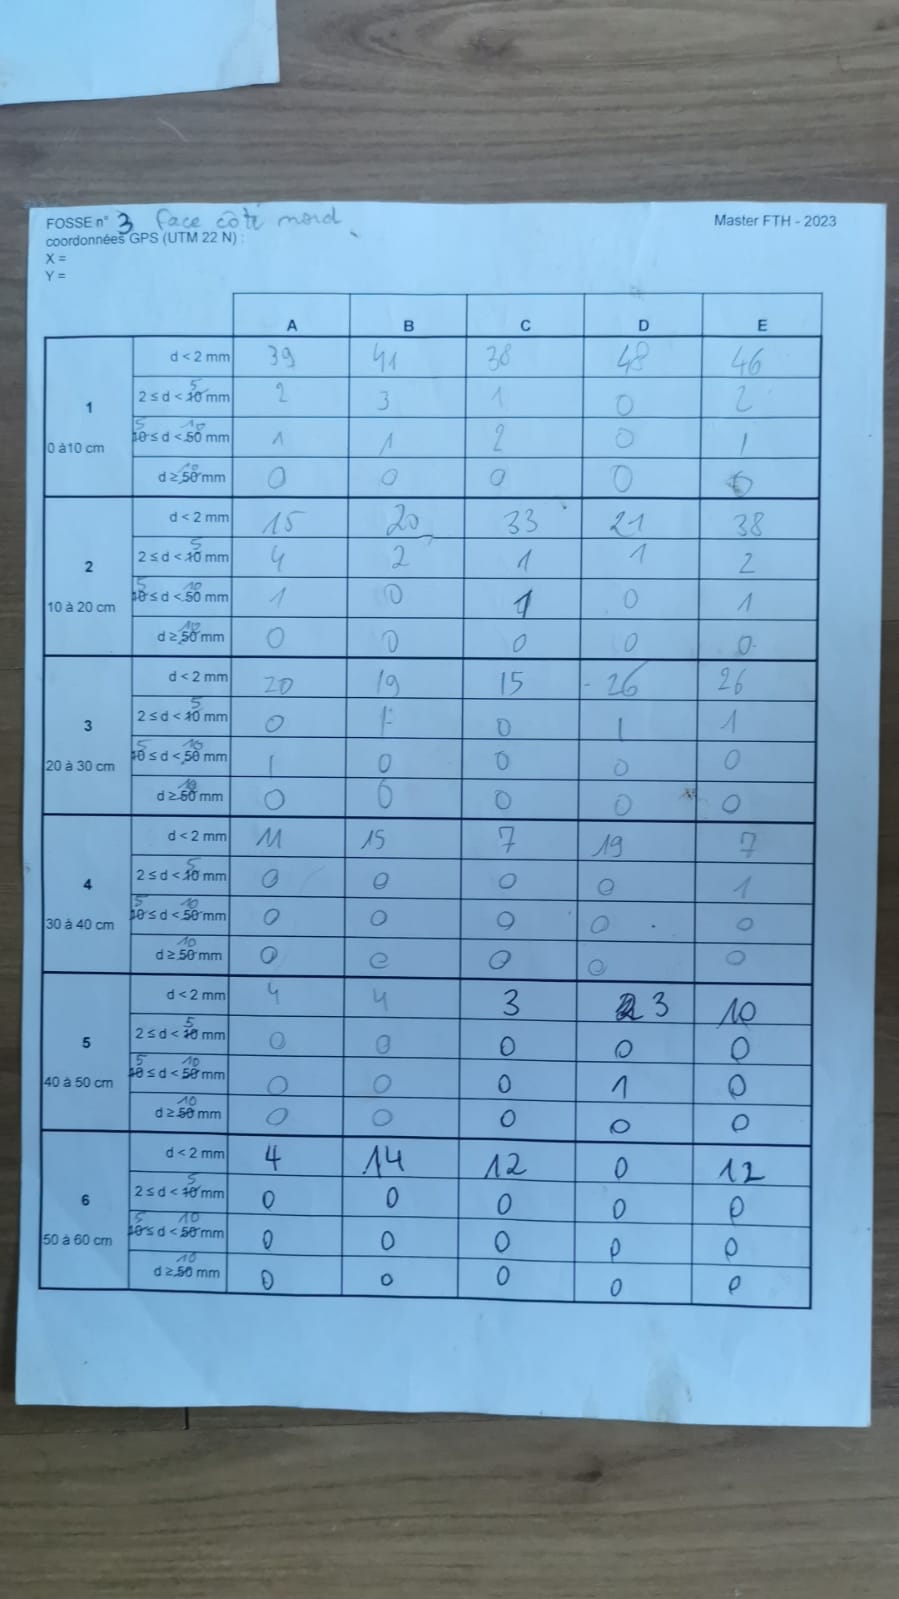 FOSSE n° 3 face côté nord
Master FTH - 2023
coordonnées GPS (UTM 22 N) :
X =
Y =
A B C D E
1
0 à10 cm
d < 2 mm 39 41 38 48 46
2 ≤ d < 10 5 mm 2 3 1 0 2
10 5 ≤ d < 50 10 mm 1 1 2 0 1
d ≥ 50 10 mm 0 0 0 0 0
2
10 à 20 cm
d < 2 mm 15 20 33 21 38
2 ≤ d < 10 5 mm 4 2 1 1 2
10 5 ≤ d < 50 10 mm 1 0 1 0 1
d ≥ 50 10 mm 0 0 0 0 0
3
20 à 30 cm
d < 2 mm 20 19 15 26 26
2 ≤ d < 10 5 mm 0 1 0 1 1
10 5 ≤ d < 50 10 mm 1 0 0 0 0
d ≥ 50 10 mm 0 0 0 0 0
4
30 à 40 cm
d < 2 mm 11 15 7 19 7
2 ≤ d < 10 5 mm 0 0 0 0 1
10 5 ≤ d < 50 10 mm 0 0 0 0 0
d ≥ 50 10 mm 0 0 0 0 0
5
40 à 50 cm
d < 2 mm 4 4 3 3 10
2 ≤ d < 10 5 mm 0 0 0 0 0
10 5 ≤ d < 50 10 mm 0 0 0 1 0
d ≥ 50 10 mm 0 0 0 0 0
6
50 à 60 cm
d < 2 mm 4 14 12 0 12
2 ≤ d < 10 5 mm 0 0 0 0 0
10 5 ≤ d < 50 10 mm 0 0 0 0 0
d ≥ 50 10 mm 0 0 0 0 0